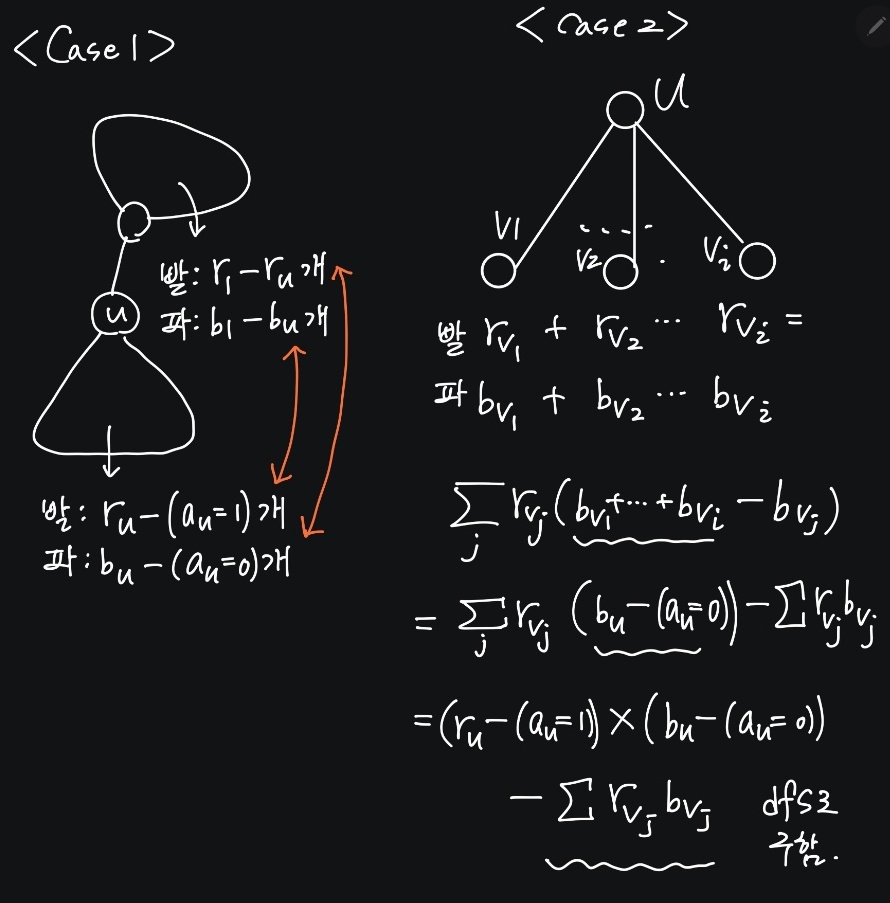 <Case 1>
u
빨: r₁-rᵤ개
파: b₁-bᵤ개
빨: rᵤ-(aᵤ=1)개
파: bᵤ-(aᵤ=0)개
<case 2>
u
V1
V2
.....
.
Vi
빨 r_{v₁} + r_{v₂} ... r_{vᵢ} =
파 b_{v₁} + b_{v₂} ... b_{vᵢ}
∑_j r_{v_j}(b_{v₁}+...+b_{vᵢ} - b_{v_j})
= ∑_j r_{v_j} (bᵤ-(aᵤ=0)) - ∑ r_{v_j} b_{v_j}
= (rᵤ-(aᵤ=1)) × (bᵤ-(aᵤ=0))
- ∑ r_{v_j} b_{v_j} dfs로
구함.